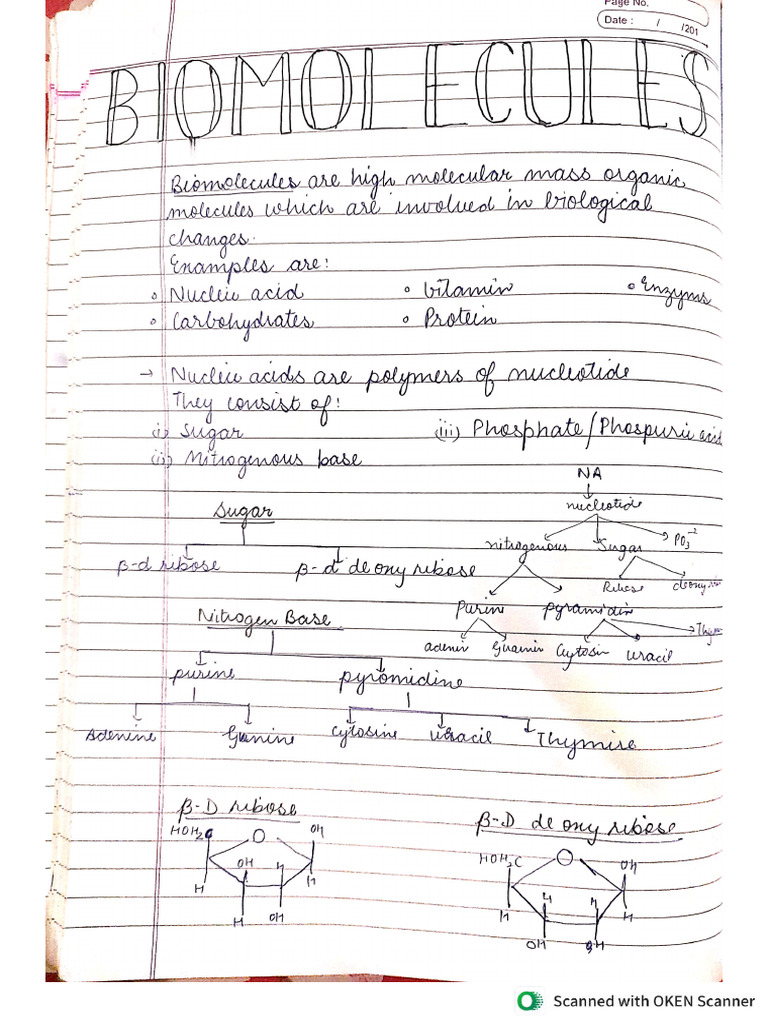 Page No.
Date : / /201
BIOMOLECULES
Biomolecules are high molecular mass organic
molecules which are involved in biological
changes.
Examples are:
Nucleic acid
Vitamin
Enzyms
Carbohydrates
Protein
→ Nucleic acids are polymers of nucleotide
They consist of:
(i) Sugar
(iii) Phosphate/Phospuric acid
(ii) Nitrogenous base
NA
nucleotide
nitrogenous
Sugar
PO3-2
Ribose
deoxy
Purine
pyramidin
adenin
Guanin
Cytosin
uracil
Thy
Sugar
β-d ribose
β-d deoxy ribose
Nitrogen Base
purine
pyromidine
Adenine
Gunine
Cytosine
Uracil
Thymine
β-D ribose
HOH2C
O
OH
H
OH
H
H
H
OH
β-D deoxy ribose
HOH2C
O
OH
H
H
H
H
OH
H
Scanned with OKEN Scanner